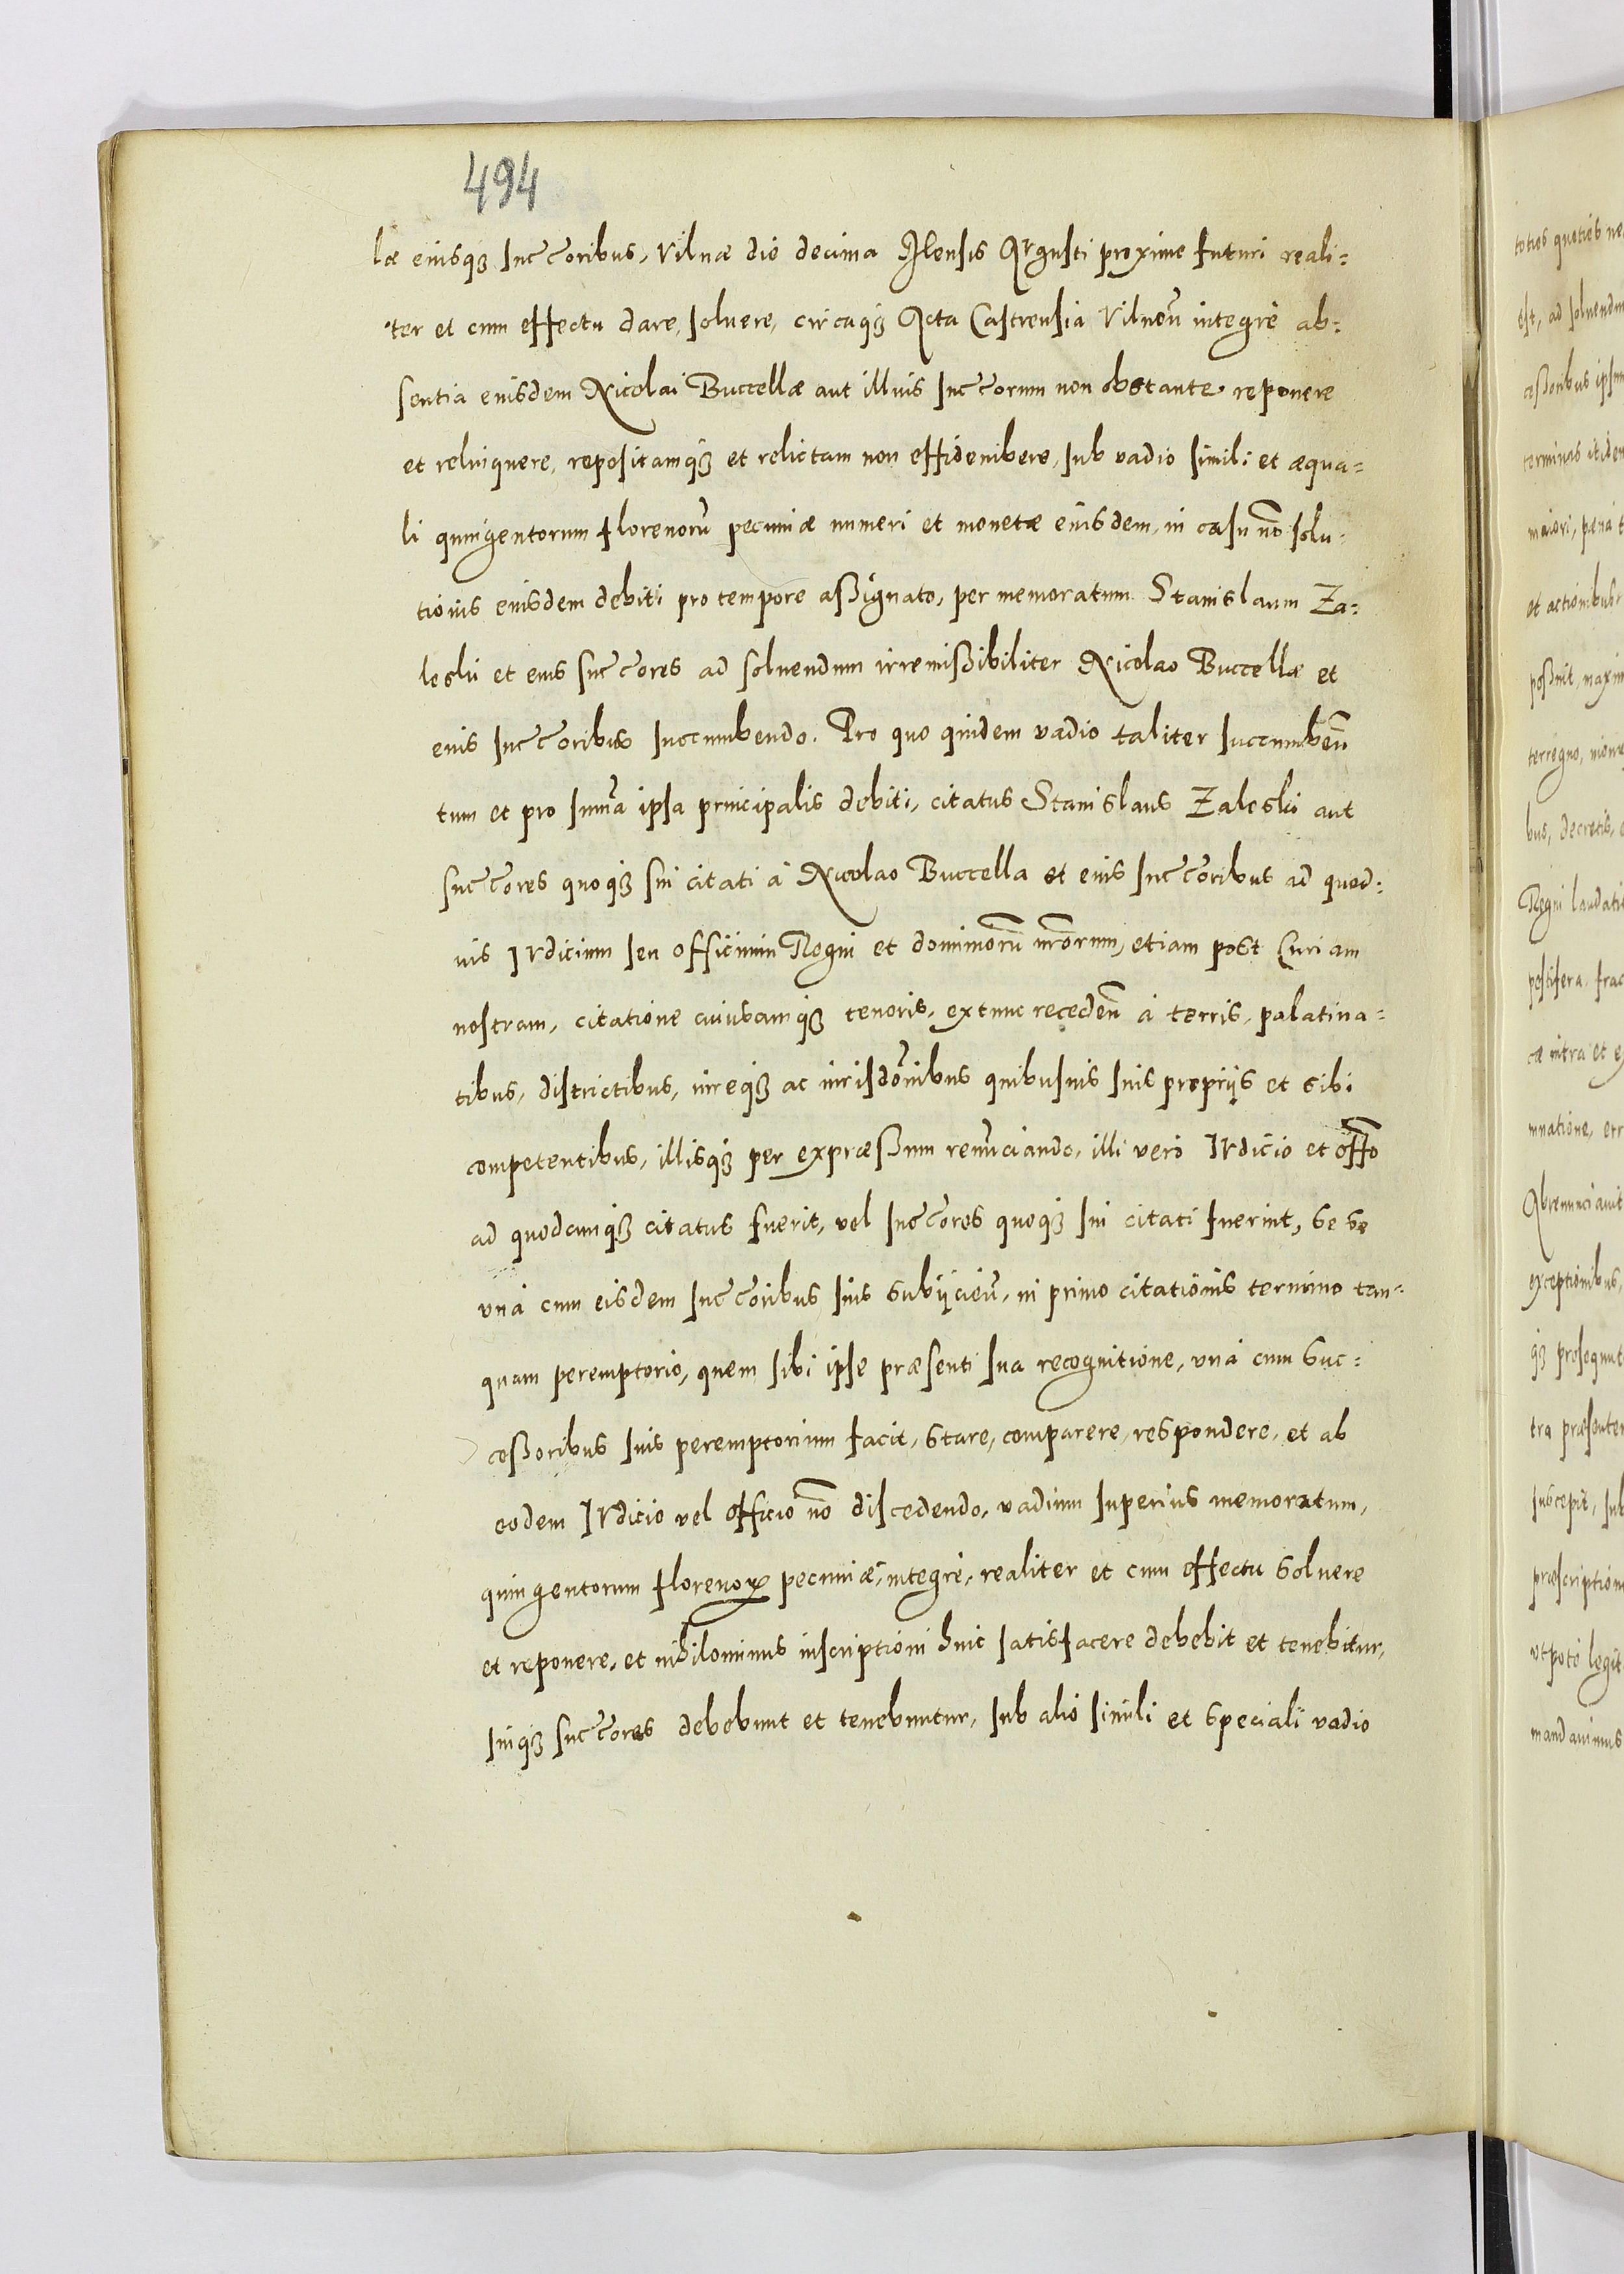 494
læ eiusqꝫ succꝛoribus, Vilnæ die decima Mensis Avgusti proxime futuri reali=
ter et cum effectu dare, soluere, circaqꝫ Acta Castrensia Vilneñ integrè ab=
sentia eiusdem Nicolai Buccellæ aut illius succorum non obstante, reponere
et relinquere, repositamqꝫ et relictam non esse, sub vadio simili et æqua=
li quingentorum florenorũ pecuniæ numeri et monetæ eiusdem, in casu nõ solu=
tionis eiusdem debiti pro tempore assignato, per memoratum Stanislaum Za=
leski et eius succores ad soluendum irremissibiliter Nicolao Buccellæ et
eius succoribus succumbendo. Pro quo quidem vadio taliter succumbeñ
tum et pro sum̃a ipsa principalis debiti, citatus Stanislaus Zaleski aut
succores quoqꝫ sui citati à Nicolao Buccella et eius succoribus ad quod=
uis Ivdicium seu officium Regni et dominiorũ nr̃orum, etiam post Curiam
nostram, citatione cuiuscumqꝫ tenoris, extunc recedeñ à terris, palatina=
tibus, districtibus, iureqꝫ ac iurisdõnibus quibusuis suis proprijs et sibi
competentibus, illisqꝫ per expræssum renũciando, illi verò Ivdicio et offõ
ad quodcumqꝫ citatus fuerit, vel succores quoqꝫ sui citati fuerint, se se
vnà cum eisdem succoribus suis subijcieñ, in primo citationis termino tan=
quam peremptorio, quem sibi ipse præsenti sua recognitione, vnà cum suc=
cessoribus suis peremptorium facit, stare, comparere, respondere, et ab
eodem Ivdicio vel officio nõ discedendo, vadium superius memoratum,
quingentorum florenoꝝ pecuniæ, integrè, realiter et cum effectu soluere
et reponere, et nihilominus inscriptioni huic satisfacere debebit et tenebitur,
suiqꝫ succores debebunt et tenebuntur, sub alio simili et speciali vadio
toties quoties ne
est, ad soluendum
cessoribus ipsiu
terminus itidem
maiori, pæna
et actionibus
possuit, maxim
bus, decretis,
Regni laudatis
pestifera, frac
cæ intra et e
mnatione, err
Abrenunciauit
exceptionibus,
qꝫ prosequut
tra præsentem
suscepit, sub
præscriptione
vtpotè legit
mandauimus